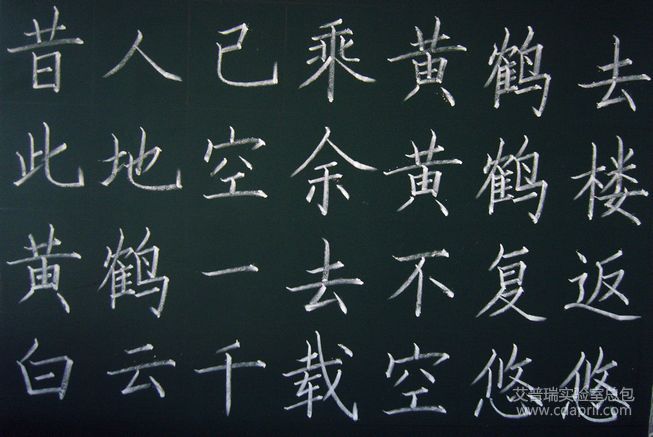 昔人已乘黄鹤去
此地空余黄鹤楼
黄鹤一去不复返
白云千载空悠悠
艾普瑞实验室总包
www.cdaprii.com